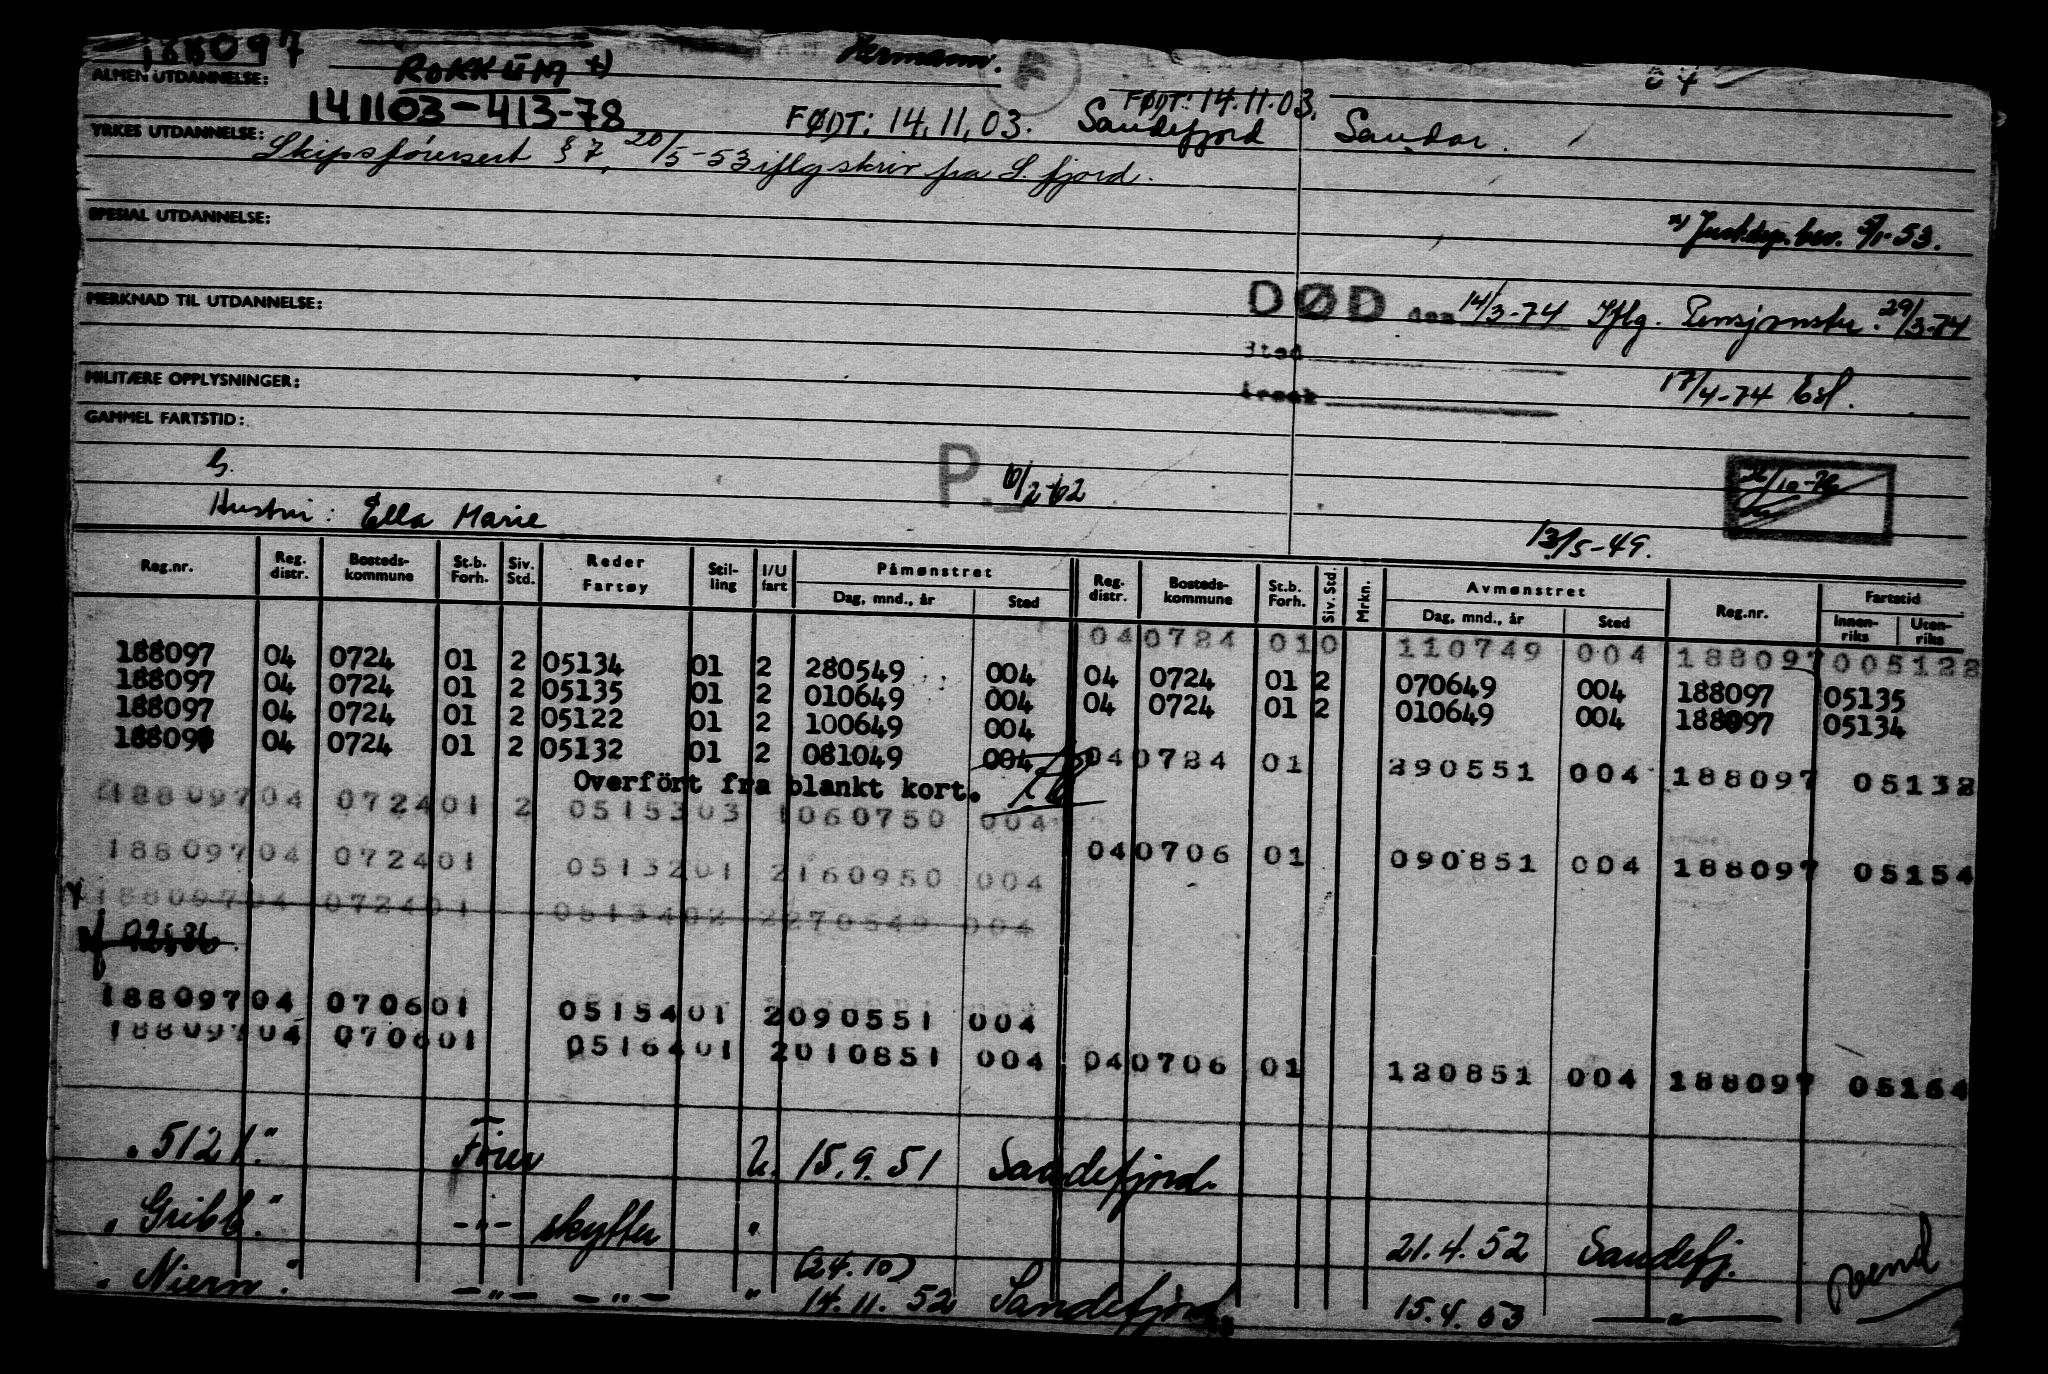 188097
ALMEN UTDANNELSE:
ROKKUM x)
Hermann.
F
141103-413-78
FØDT: 14.11.03.
FØDT: 14.11.03.
Sandefjord
Sandar.
YRKES UTDANNELSE:
Skipsförersert § 7, 20/5-53 iflg skriv fra S. fjord.
SPESIAL UTDANNELSE:
x) Just.dep. bev. 5/1-53.
MERKNAD TIL UTDANNELSE:
DØD den 14/3-74 Iflg. Pensjonstr. 29/3-74
Sted
MILITÆRE OPPLYSNINGER:
17/4-74
GAMMEL FARTSTID:
G.
P. 10/2-62
Hustru: Ella Marie
13/5-49.
Reg.nr. Reg. distr. Bosteds-kommune St.b. Forh. Siv. Std. Reder Fartøy Stil-ling I/U fart Påmønstret Dag, mnd., år Sted Reg. distr. Bosteds-kommune St.b. Forh. Siv. Std. Mrkn. Avmønstret Dag, mnd., år Sted Reg.nr. Fartstid Innen-riks Uten-riks
040724 010 110749 004 188097 005122
188097 04 0724 01 2 05134 01 2 280549 004 04 0724 01 2 070649 004 188097 05135
188097 04 0724 01 2 05135 01 2 010649 004 04 0724 01 2 010649 004 188097 05134
188097 04 0724 01 2 05122 01 2 100649 004
188097 04 0724 01 2 05132 01 2 081049 004 040724 01 290551 004 188097 05132
Overfört fra blankt kort.
18809704 072401 2 0515303 1060750 004
040706 01 090851 004 188097 05154
18809704 072401 0513201 2160950 004
18809704 072401 0513402 2270549 004
18809704 070601 0515401 2090551 004
18809704 070601 0516401 2010851 004 040706 01 120851 004 188097 05164
"5121." Förer U. 15.9.51 Sandefjord.
"Gribb." -"- skytter " 21.4.52 Sandefj.
(24.10)
"Niern". -"- -"- " 14.11.52 Sandefjord. 15.4.53 -"-
vend